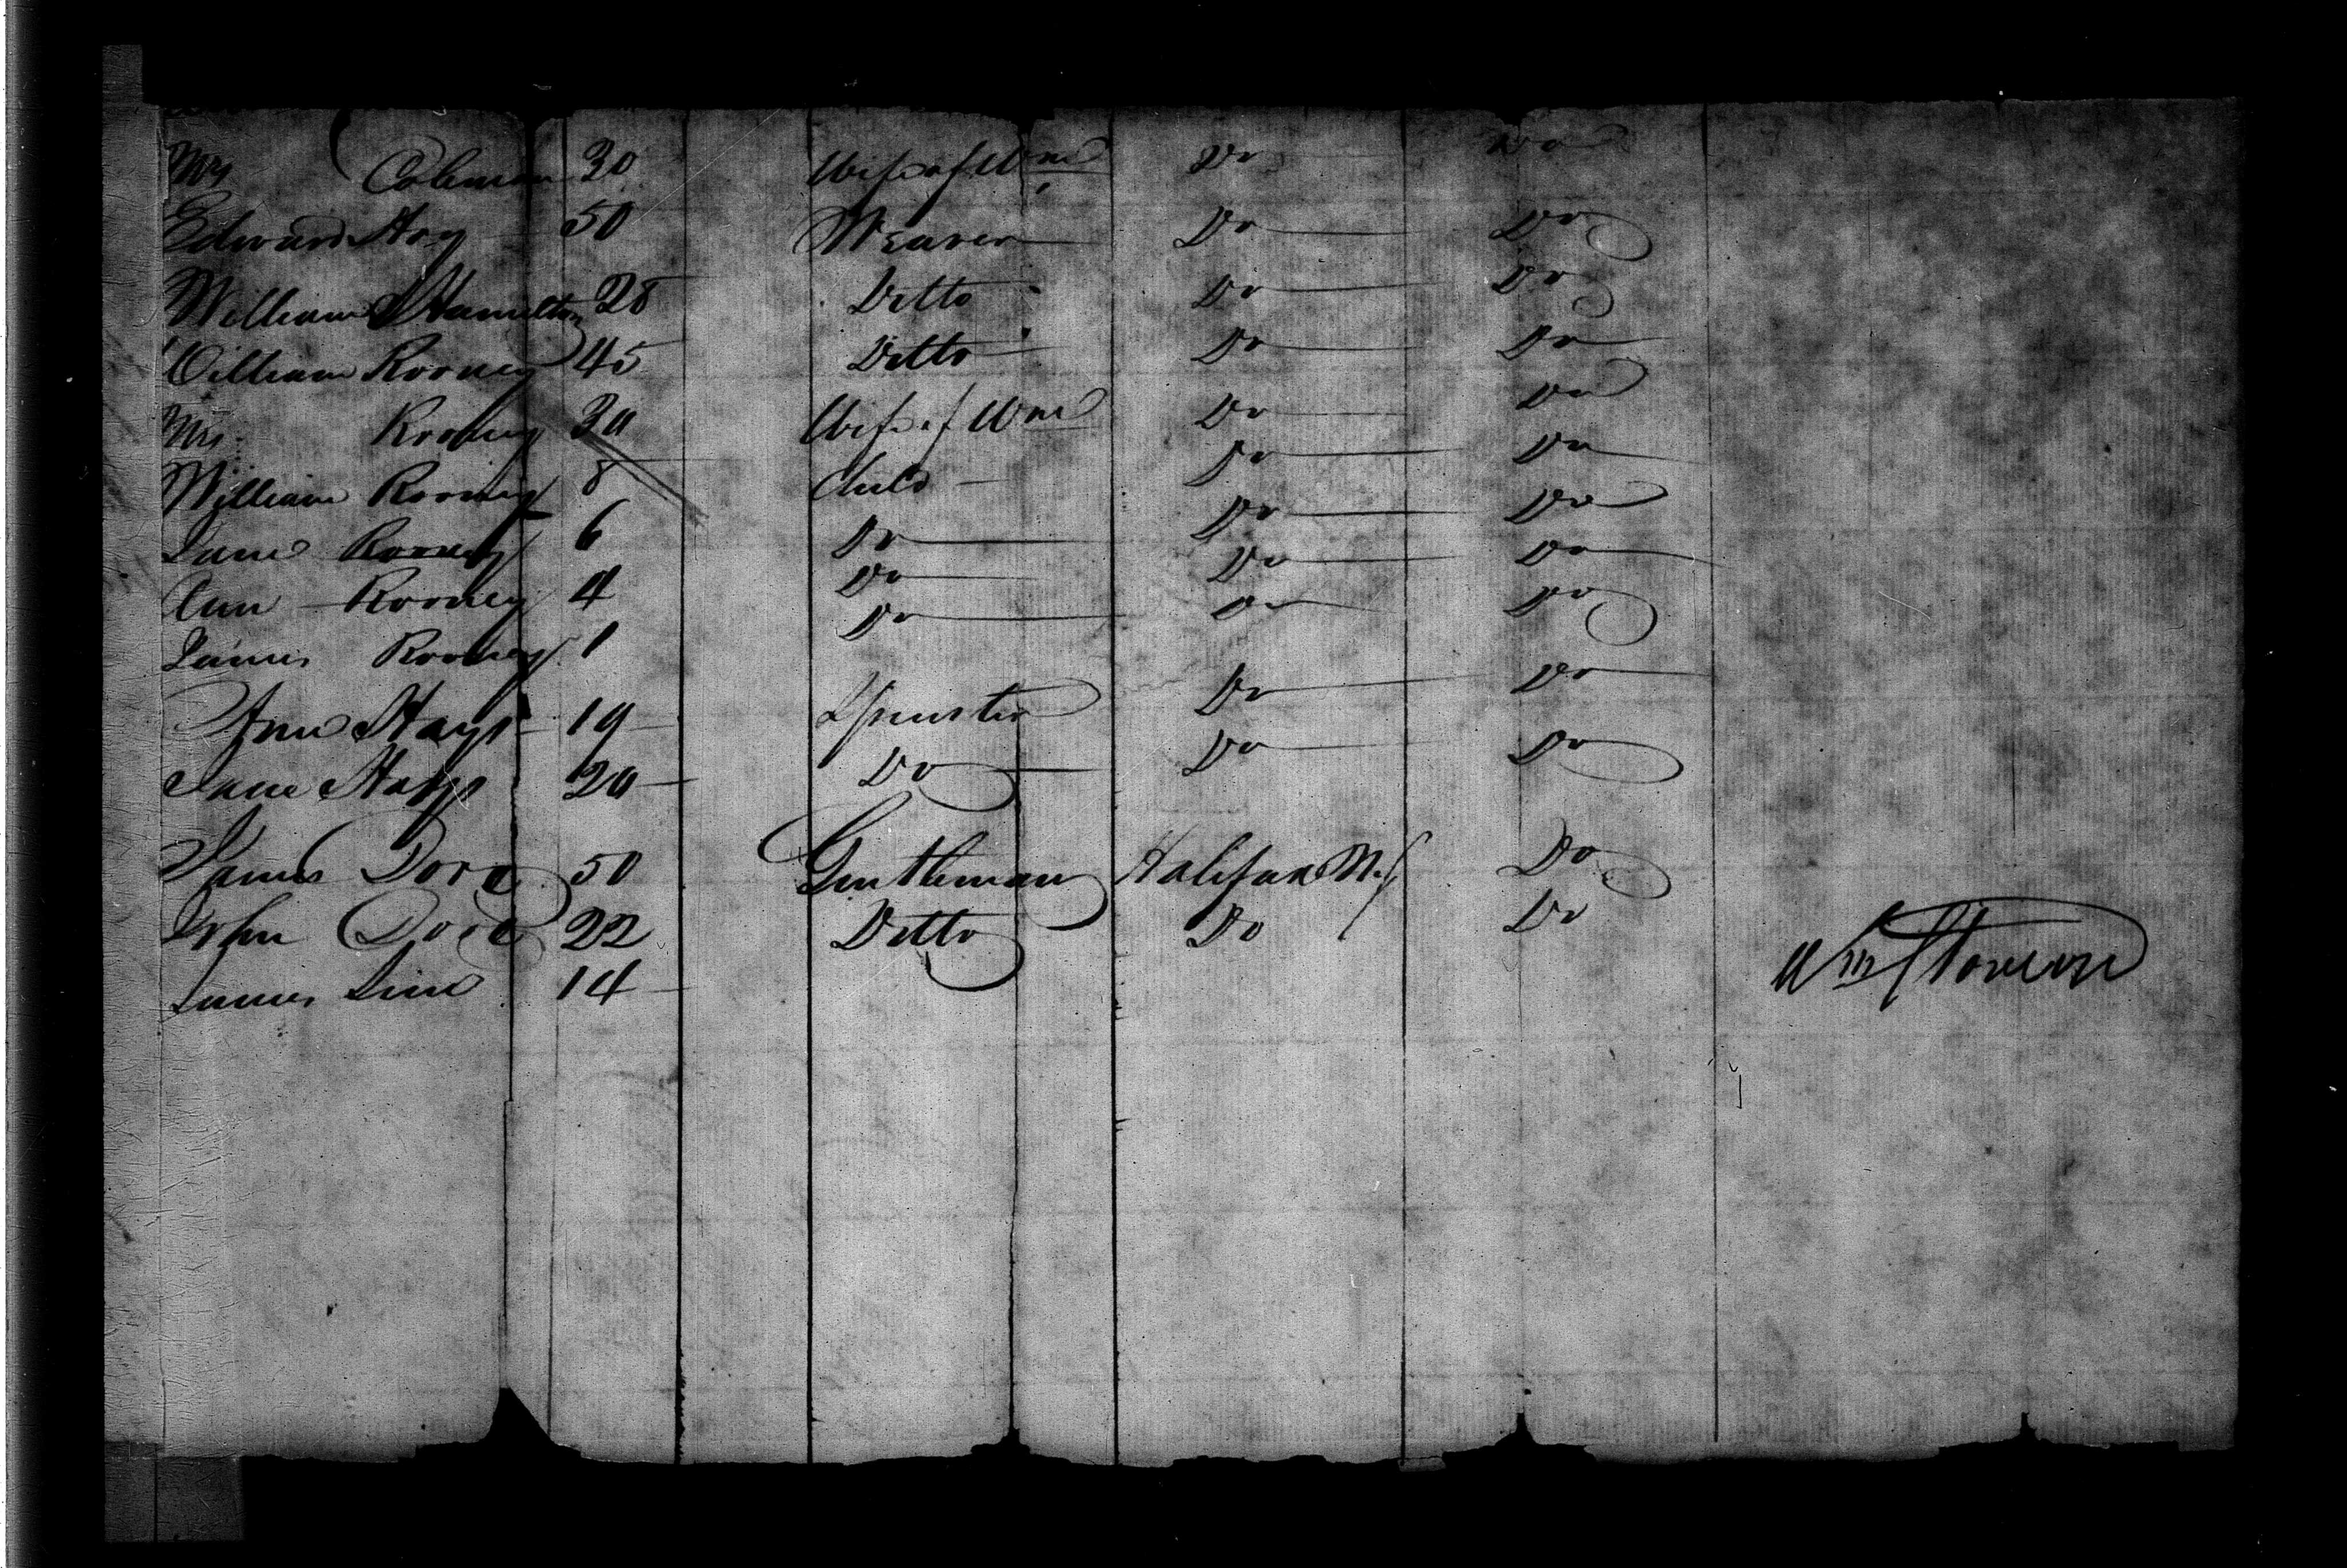 Mrs Coleman 30 Wife of Wm Do Do
Edward Hoy 50 Weaver Do Do
William Hamilton 28 Ditto Do Do
William Rooney 45 Ditto Do Do
Mrs Rooney 30 Wife of Wm Do Do
William Rooney 8 Child Do Do
Jane Rooney 6 Do Do Do
Ann Rooney 4 Do Do Do
James Rooney 1 Do Do Do
Ann Hays 19 Spinster Do Do
Jane Hays 20 Do Do Do
James 50 Gentleman Halifax N.S Do
John 22 Ditto Do Do
James 14
Wm